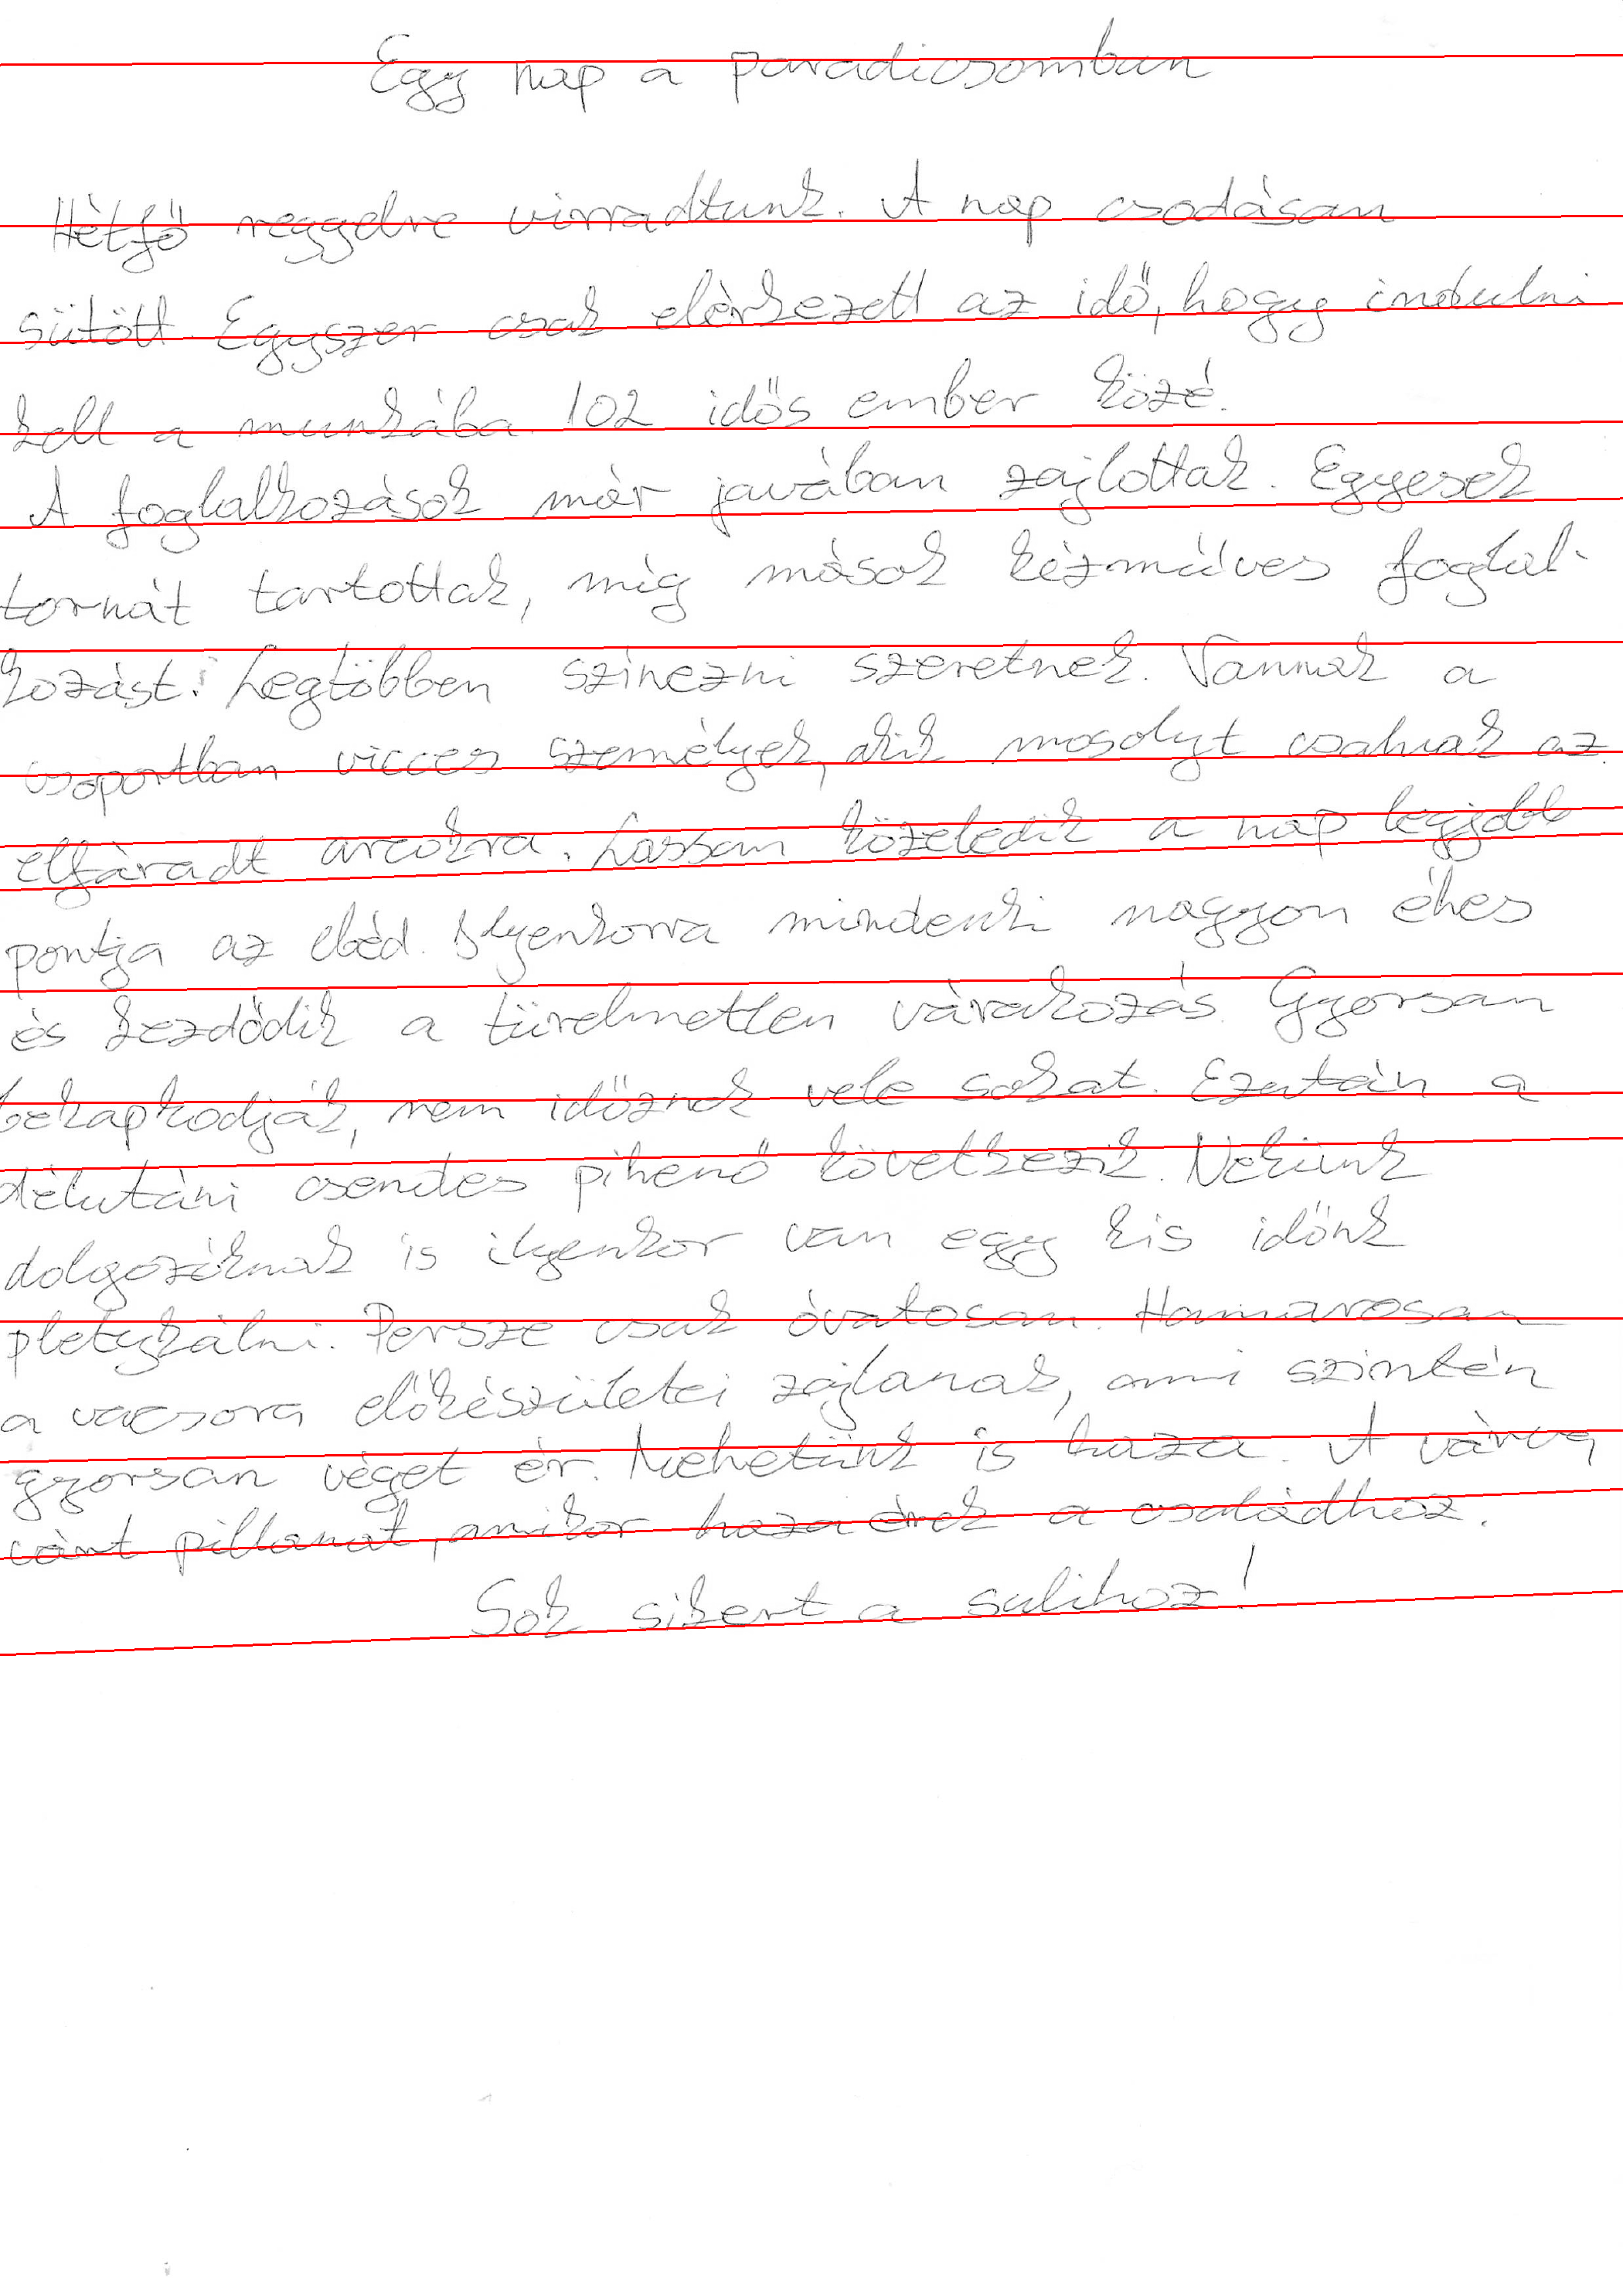 Egy nap a paradicsomban
Hétfő reggelre virradtunk. A nap csodásan
sütött. Egyszer csak elérkezett az idő, hogy indulni
kell a munkába 102 idős ember közé.
A foglalkozások már javában zajlottak. Egyesek
tornát tartottak, míg mások kézműves foglal-
kozást. Legtöbben színezni szeretnek. Vannak a
csoportban vicces személyek, akik mosolyt csalnak az
elfáradt arcokra. Lassan közeledik a nap legjobb
pontja az ebéd. Ilyenkorra mindenki nagyon éhes
és kezdődik a türelmetlen várakozás. Gyorsan
bekapkodják, nem időznek vele sokat. Ezután a
délutáni csendes pihenő következik. Nekünk
dolgozóknak is ilyenkor van egy kis időnk
pletykálni. Persze csak óvatosan. Hamarosan
a vacsora előkészületei zajlanak, ami szintén
gyorsan véget ér. Mehetünk is haza. A várva
várt pillanat, amikor haza érek a családhoz.
Sok sikert a sulihoz!